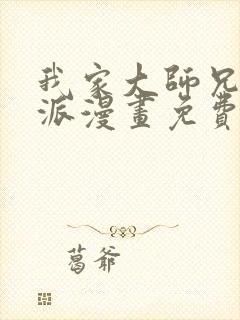 我家大師兄
派漫畫免費
葛爺